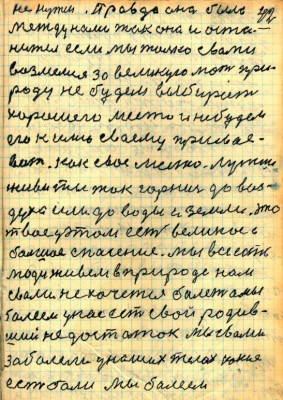 не нужн. Правда она была
между нами так она и оста-
нится если мы только с вами
возмемся за великую мать при-
роду не будем выбирать
хорошего место и небудем
его к имь своему присвае-
вать. как свое место. Лучше
живи ты так горния до воз-
духа или до воды и земли. это
твое у этом есть великое и
большое спасение. мы все есть
люди живем в природе нам
свами не хочется болеть а мы
балеем у нас есть свой родив-
ший недостаток мы свами
заболели у наших телах
есть боли мы балеем